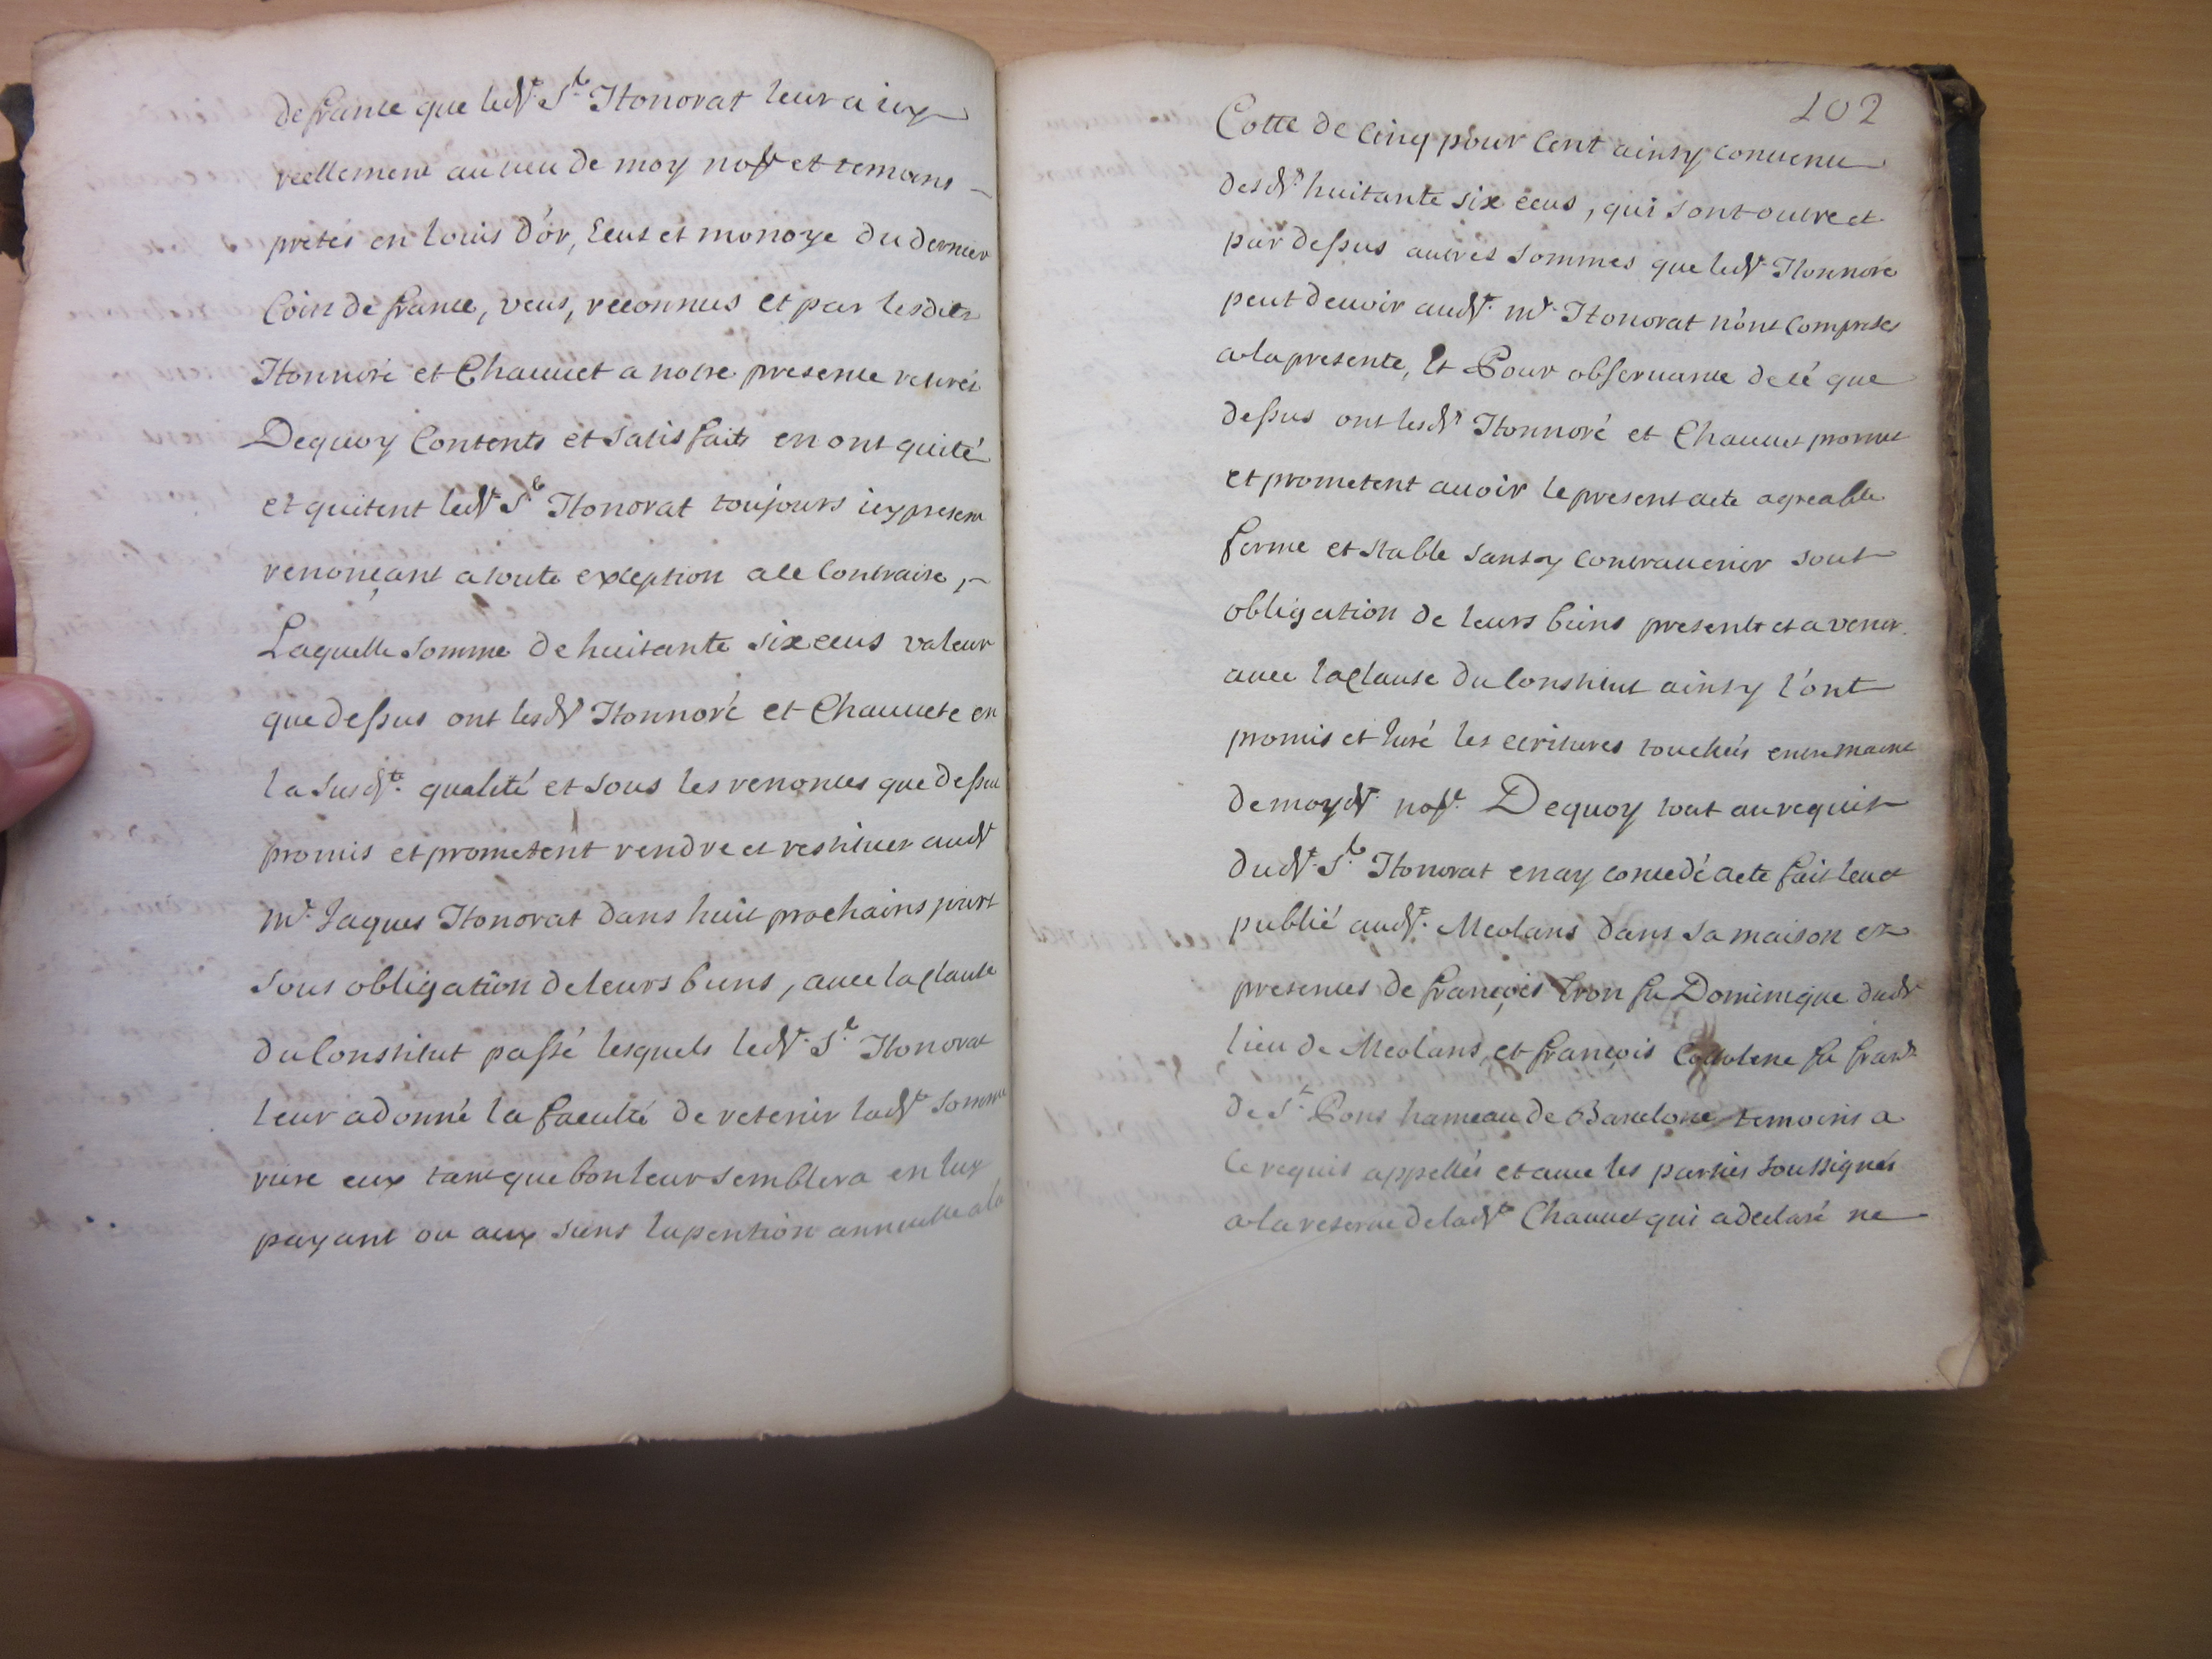 de france que led.t S.r Honorat leur a icy
reellement au veu de moy no.re et temoins
pretés en louis d'ór, Ecus et monoye du dernier
Coin de france, veus, reconnus et par lesdits
Honnoré et Chauuet a notre presence retirés
Dequoy Contents et satisfaits en ont quité
et quitent led.t S.r Honorat toujours icy present
renonçant a toute exception a ce Contraire,
Laquelle somme de huitante six ecus valeur
que dessus ont lesd.ts Honnoré et Chauuete en
la susd.te qualité et sous les renonces que dessus
promis et prometent rendre et restituer aud.t
m.e Jaques Honorat dans huit prochains jours
sous obligation de leurs biens, auec la clause
du Constitut passé lesquels led.t S.r Honorat
leur a donné la faculté de retenir lad.te somme
riere eux tant que bon leur semblera en luy
payant ou aux siens la pention annuelle a la
102
Cotte de Cinq pour Cent ainsy conuenu
desd.ts huitante six ecus, qui sont outre et
par dessus autres sommes que led.t Honnoré
peut deuoir aud.t m.e Honorat n'ont Comprises
a la presente, Et Pour obseruance de cé que
dessus ont lesd.ts Honnoré et Chauuet promis
et prometent auoir le present acte agreable
ferme et stable sans y contrauenir sout
obligation de leurs biens presents et a venir.
auec la Clause du Constitut ainsy l'ont
promis et Juré les ecritures touchées entre mains
de moyd.t no.re Dequoy tout au requis
dud.t S.r Honorat en ay concedé acte fait leu et
publié aud.t Meolans dans sa maison en
presences de françois Tron fu Dominique dud.t
lieu de Meolans, et françois fu
de S.t Pons hameau de Barcelone temoins a
ce requis appellés et auec les parties soussignés
a la reserue de lad.te Chauuet qui a declaré ne